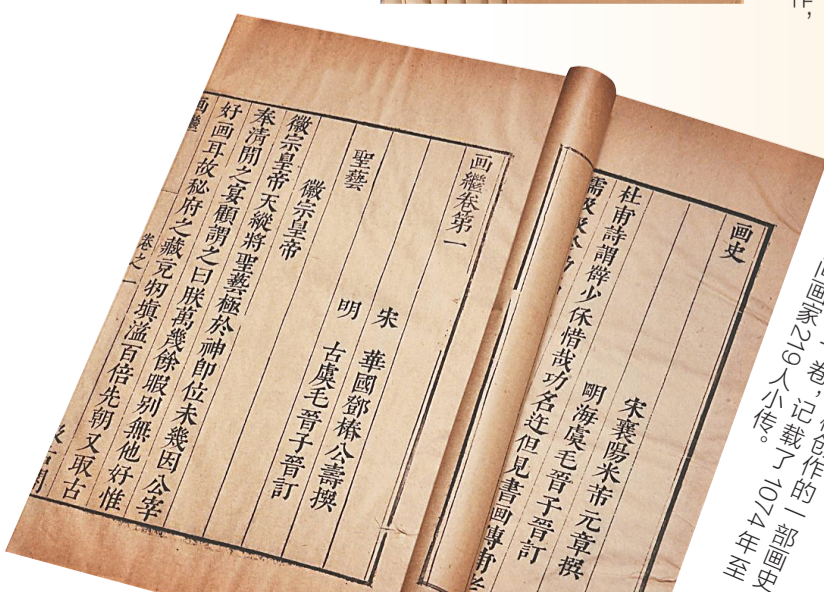 画史
宋襄陽米芾元章撰
明海虞毛晉子晉訂
杜甫詩謂薛少保惜哉功名迕但見書画傳甫老
儒汲汲於功
画繼卷第一
宋 華國鄧椿公壽撰
明 古虞毛晉子晉訂
聖藝
徽宗皇帝
徽宗皇帝天縱將聖藝極於神即位未幾因公宰
奉清閒之宴顧謂之曰朕萬幾餘暇別無他好惟
好画耳故秘府之藏充牣填溢百倍先朝又取古
画繼
卷之一
作,
卷,
创作的一部画史
画家219人小传。
记载了1074年至